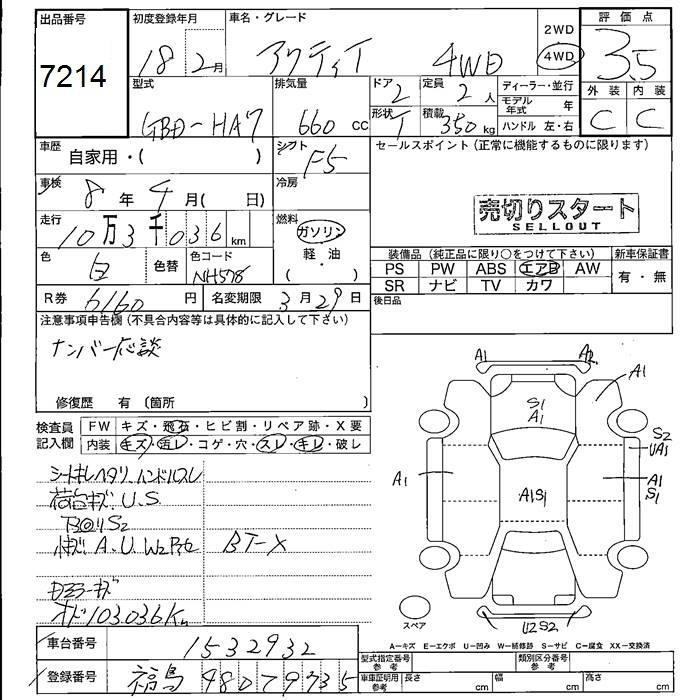 出品番号
7214
初度登録年月
18 2月
車名・グレード
アクティT 4WD
2WD
4WD
評価点
3.5
外装 内装
C C
型式
GBD-HA7
排気量
660 cc
ドア
2
形状
T
定員
2人
積載
350kg
ディーラー・並行
モデル年式 年
ハンドル 左・右
車歴
自家用・( )
シフト
F5
セールスポイント(正常に機能するものに限ります)
車検
8年 4月( 日)
冷房
売切りスタート
SELLOUT
走行
10万3千036km
燃料
ガソリン
軽・油
・( )
色
白
色替
色コード
NH578
装備品(純正品に限り○をつけて下さい)
新車保証書
PS PW ABS エアB AW
SR ナビ TV カワ
有・無
R券 6160円
名変期限 3月29日
後日品
注意事項申告欄(不具合内容等は具体的に記入して下さい)
ナンバー応談
修復歴 有(箇所 )
検査員記入欄
FW キズ・飛石・ヒビ割・リペア跡・X要
内装 キズ・汚レ・コゲ・穴・スレ・キレ・破レ
シートキレヘタリ ハンドルスレ
荷台キズ.U.S
S2
A.U.W2
BT-X
キズ
オド103,036Km
A1
A2
A1
S1
A1
S2
UA1
A1
A1S1
A1
S1
U2S2
スペア
A-キズ E-エクボ U-凹み W-補修跡 S-サビ C-腐食 XX-交換済
車台番号
1532932
登録番号
福島 480
型式指定番号 参考
類別区分番号 参考
車庫証明用 参考
長さ cm
幅 cm
高さ cm